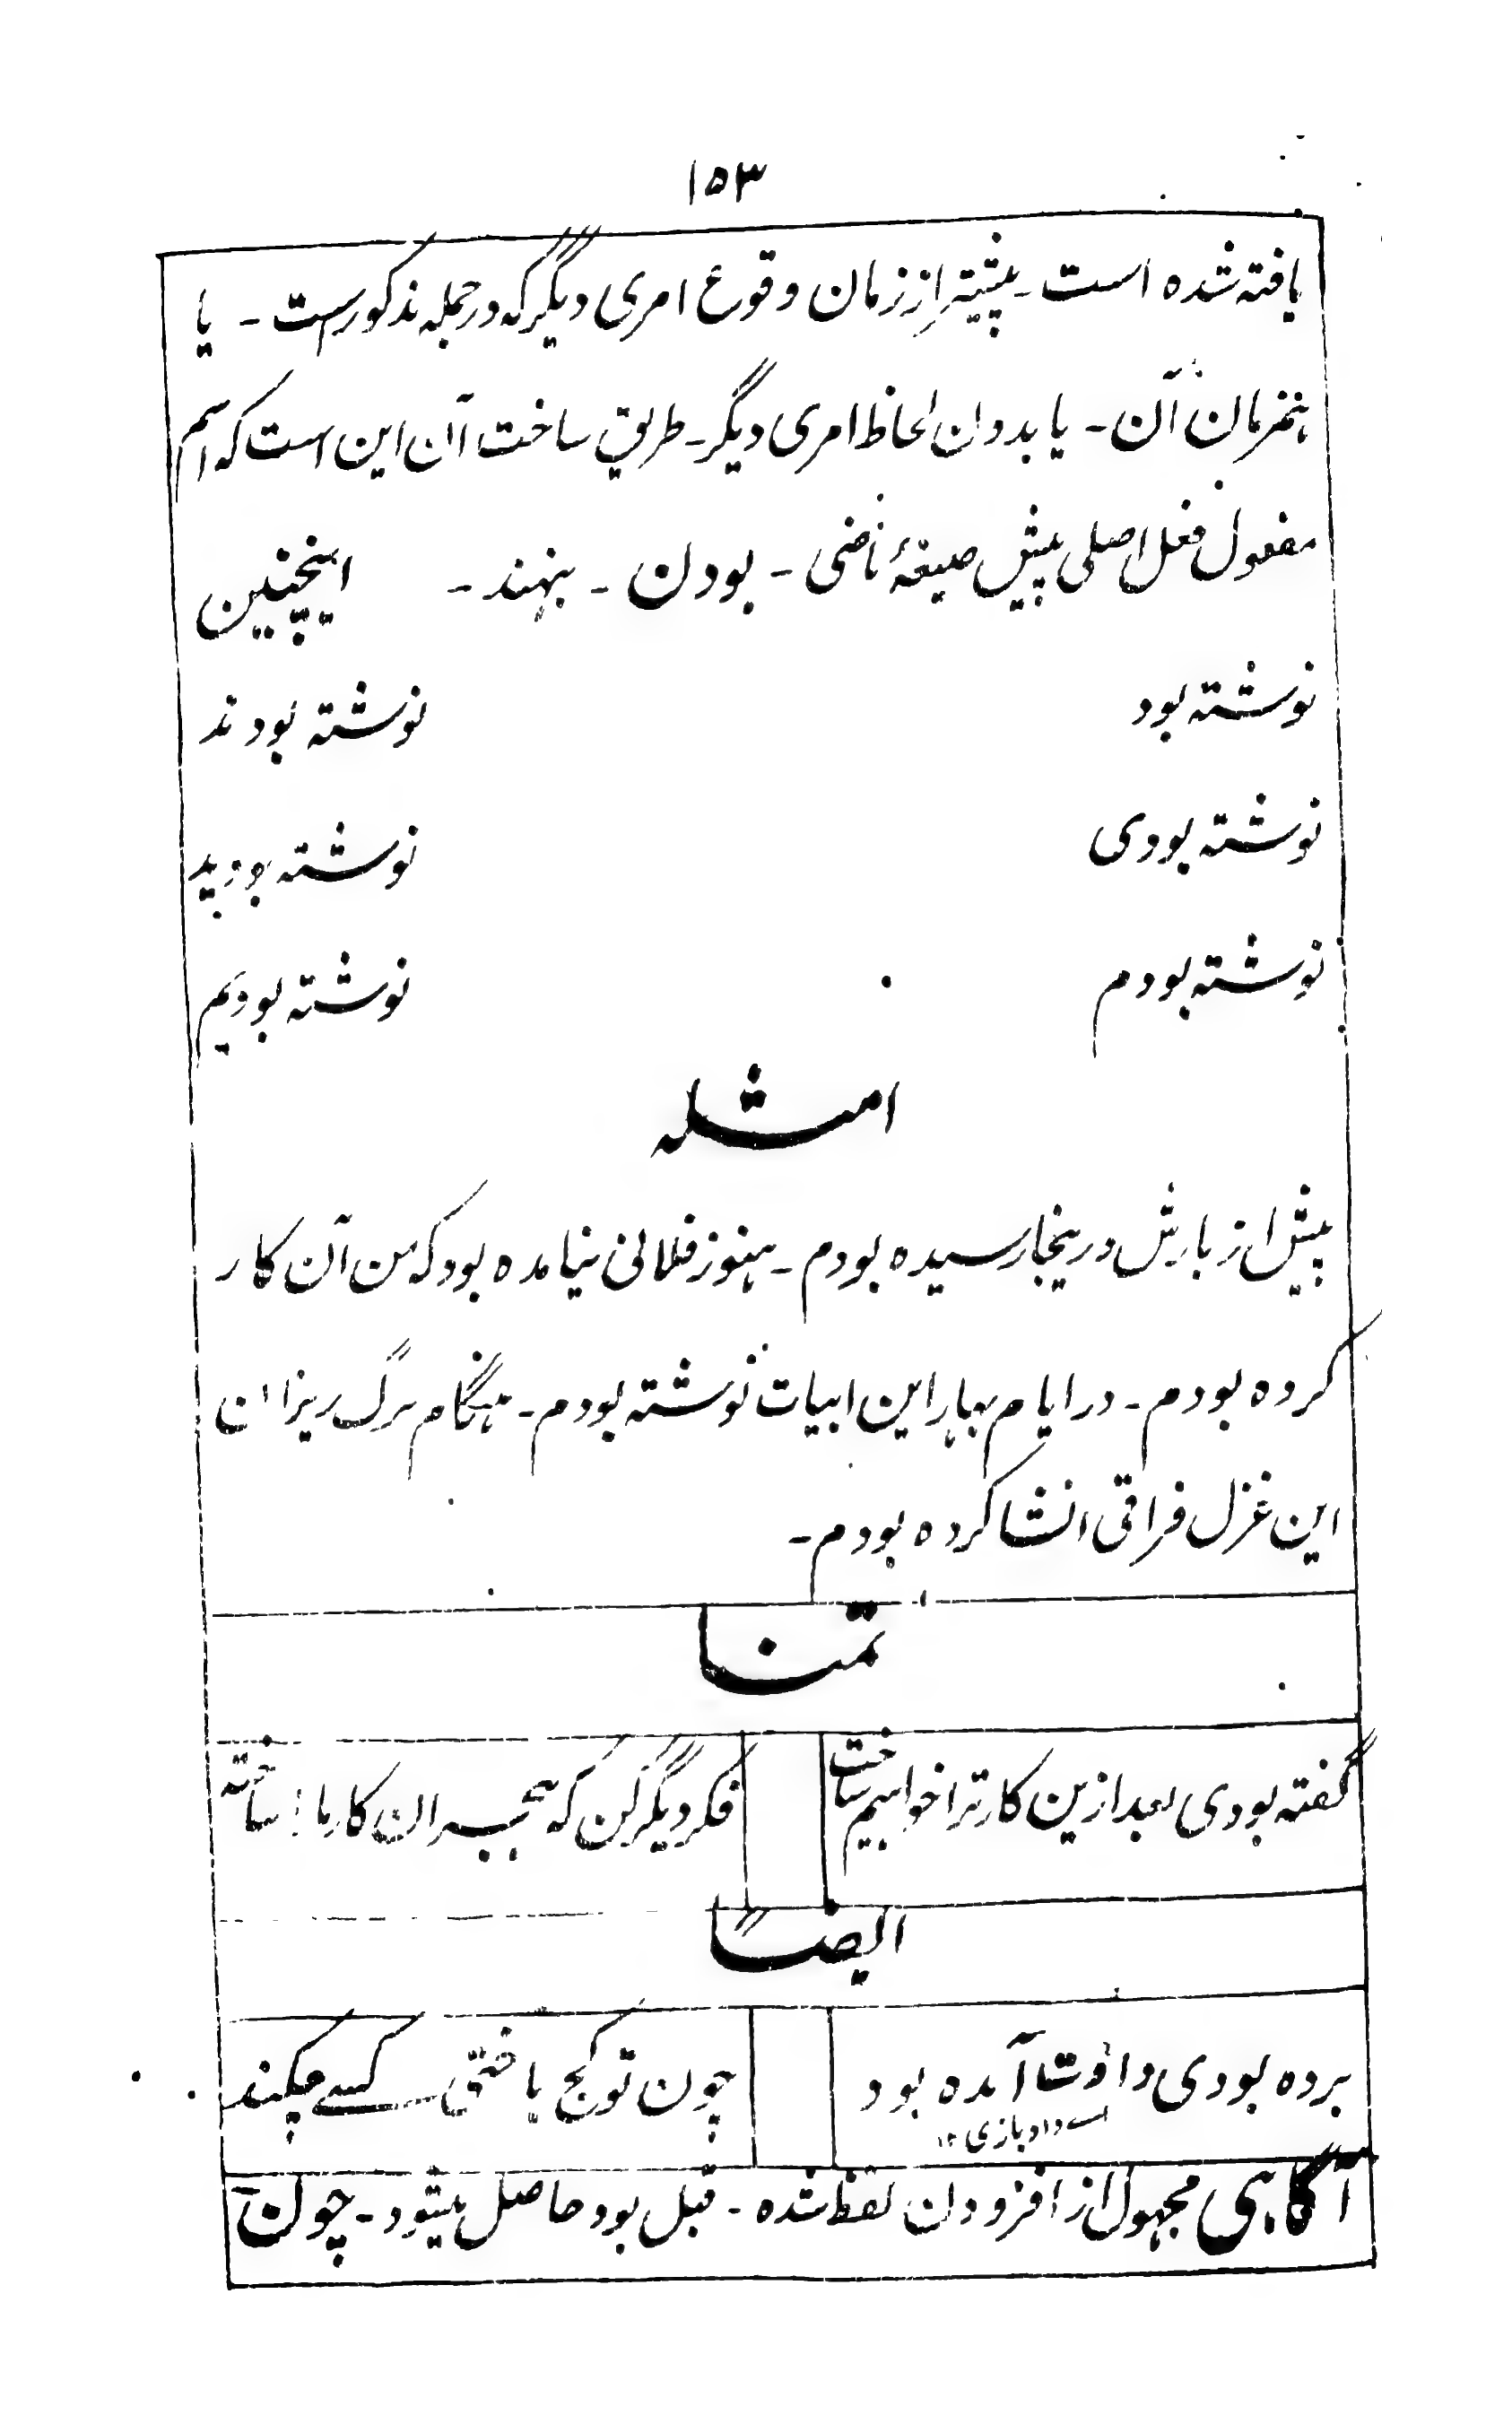 ۱۵۳
یافته شده است ـ پیشتر از زمان وقوع امری دیگر که در جمله مذکورست ـ یا
همزمان آن ـ یا بدون لحاظ امری دیگر ـ طریق ساخت آن این است که اسم
مفعول فعل اصلی پیش صیغهٔ ماضی ـ بودن ـ بنهند ـ اینچنین
نوشته بود نوشته بودند
نوشته بودی نوشته بودید
نوشته بودم نوشته بودیم
امثله
پیش از بارش درینجا رسیده بودم ـ هنوز فلانی نیامده بود که من آن کار
کرده بودم ـ در ایام بهار این ابیات نوشته بودم ـ هنگام برگ ریزان
این غزل فراقی انشا کرده بودم ـ
تمنا
گفته بودی بعد ازین کار ترا خواهیم ساخت فکر دیگر کن که هجران کار ما را ساخته
ایضاً
برده بودی و اوت آمده بود چون تو کج باختی کسے چکند
اے داو بازی ۱۲
آگاہی مجہول از افزودن لفظ شده ـ قبل بود حاصل میشود ـ چون